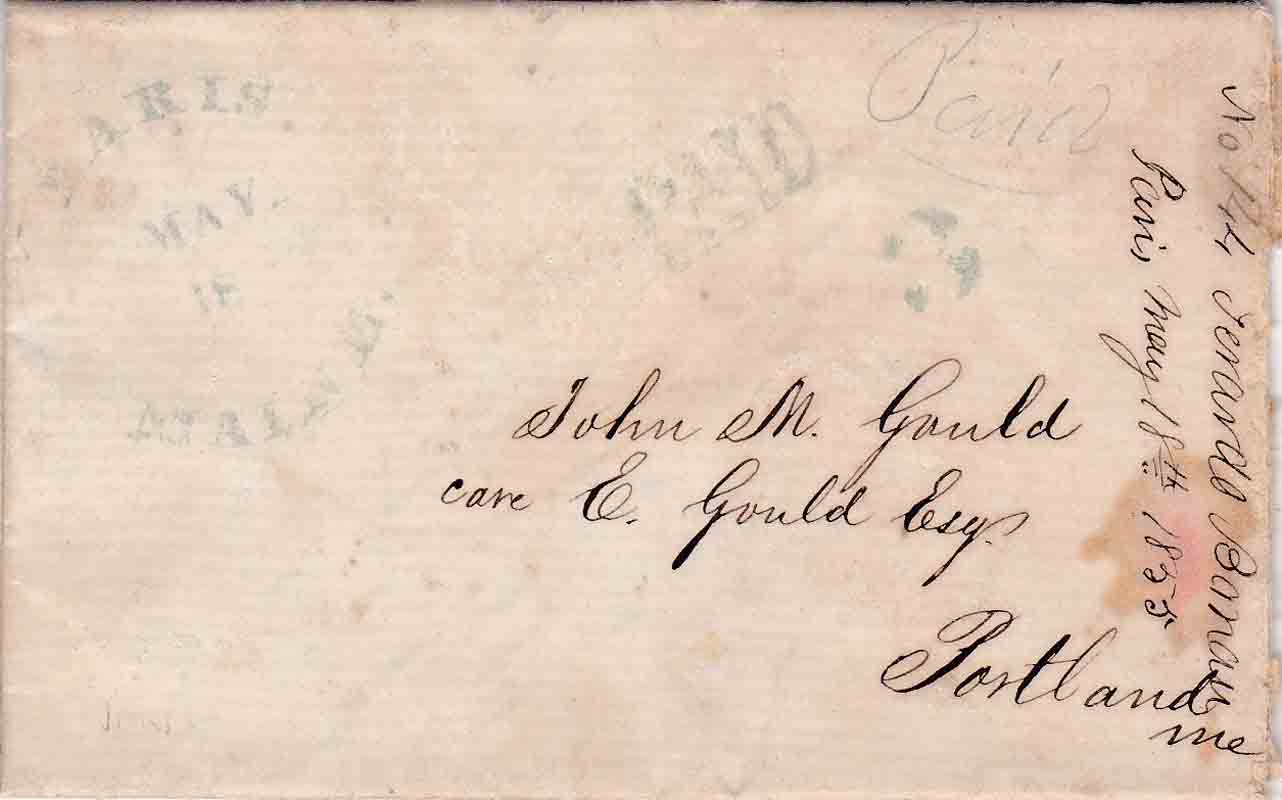 PARIS
MAY.
18
MAINE
PAID
3
Paid
John M. Gould
care E. Gould Esq.
Portland
me
No
Paris, May 18th 1855